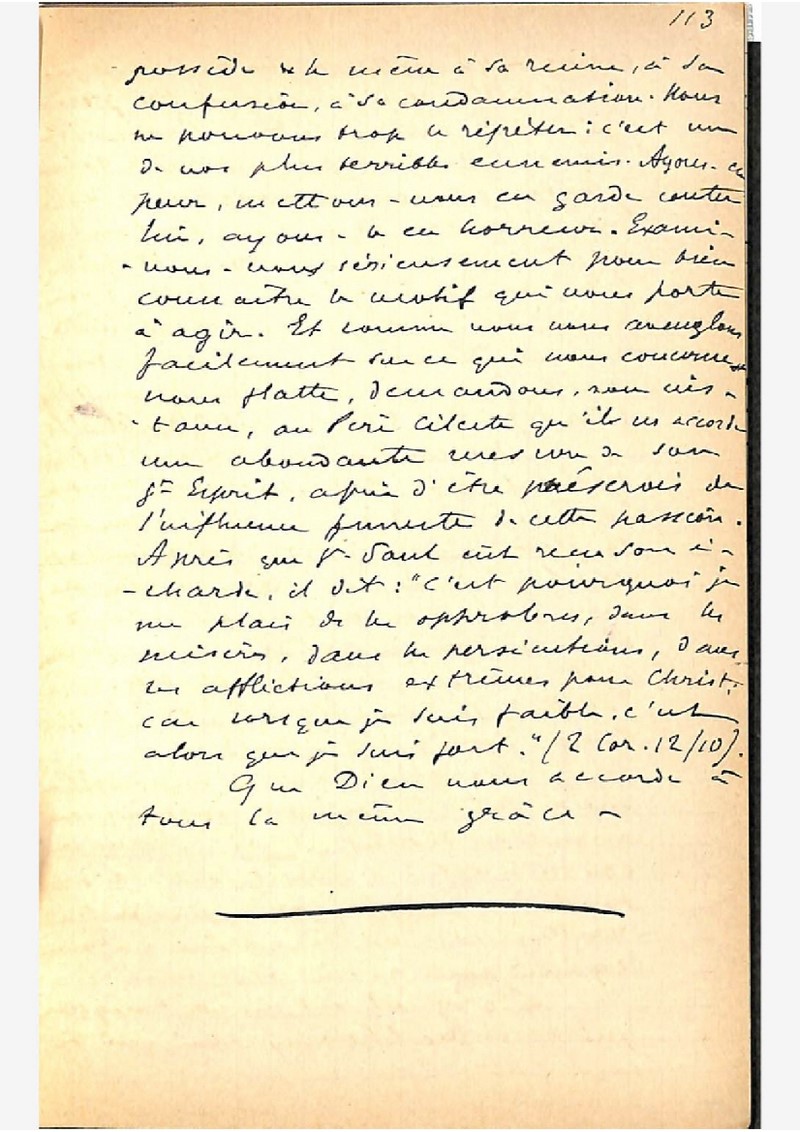 113
possède & le mène à sa ruine, à sa
confusion, à sa condamnation. Nous
ne pouvons trop le répéter : c'est un
de nos plus terribles ennemis. Ayons-en
peur, mettons-nous en garde contre
lui, ayons-le en horreur. Exami-
-nons-nous sérieusement pour bien
connaître le motif qui nous porte
à agir. Et comme nous nous aveuglons
facilement sur ce qui nous concerne &
nous flatte, demandons, sans cis-
-tance, au Père Céleste qu'il us accorde
une abondante mesure de son
St Esprit, afin d'être préservés de
l'influence funeste de cette passion.
Après que St Paul eût reçu son é-
-charde, il dit : "C'est pourquoi je
me plais ds les opprobres, dans les
misères, dans les persécutions, dans
les afflictions extrêmes pour Christ;
car lorsque je suis faible, c'est
alors que je suis fort." (2 Cor. 12/10).
Que Dieu nous accorde à
tous la même grâce -